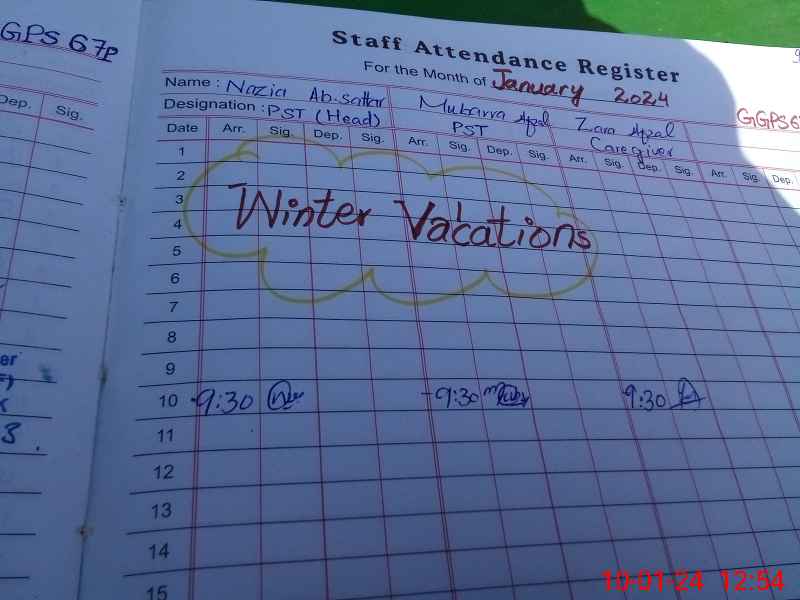 GPS 67P
Staff Attendance Register
For the Month of January 2024
Name : Nazia Ab.Sattar Mubarra Afzal Zara Afzal GGPS 6
Designation : PST (Head) PST Caregiver
Dep. Sig.
Date Arr. Sig. Dep. Sig. Arr. Sig. Dep. Sig. Arr. Sig. Dep. Sig. Arr. Sig. Dep.
1
2
3
Winter Vacations
4
5
6
7
8
9
10 9:30 9:30 9:30
11
12
13
14
15
er
3.
10-01-24 12:54